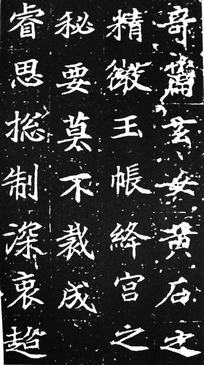 奇竒玄女黄石之
精微玉帳絳宫之
秘要莫不裁成
睿思揔制深衷超